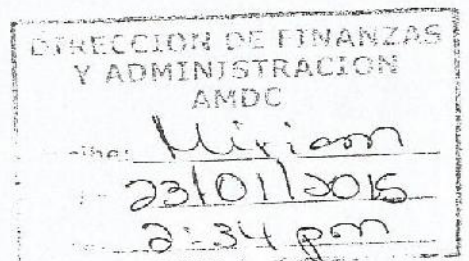 DIRECCION DE FINANZAS
Y ADMINISTRACION
AMDC
Miriam
23/01/2015
2:34 pm